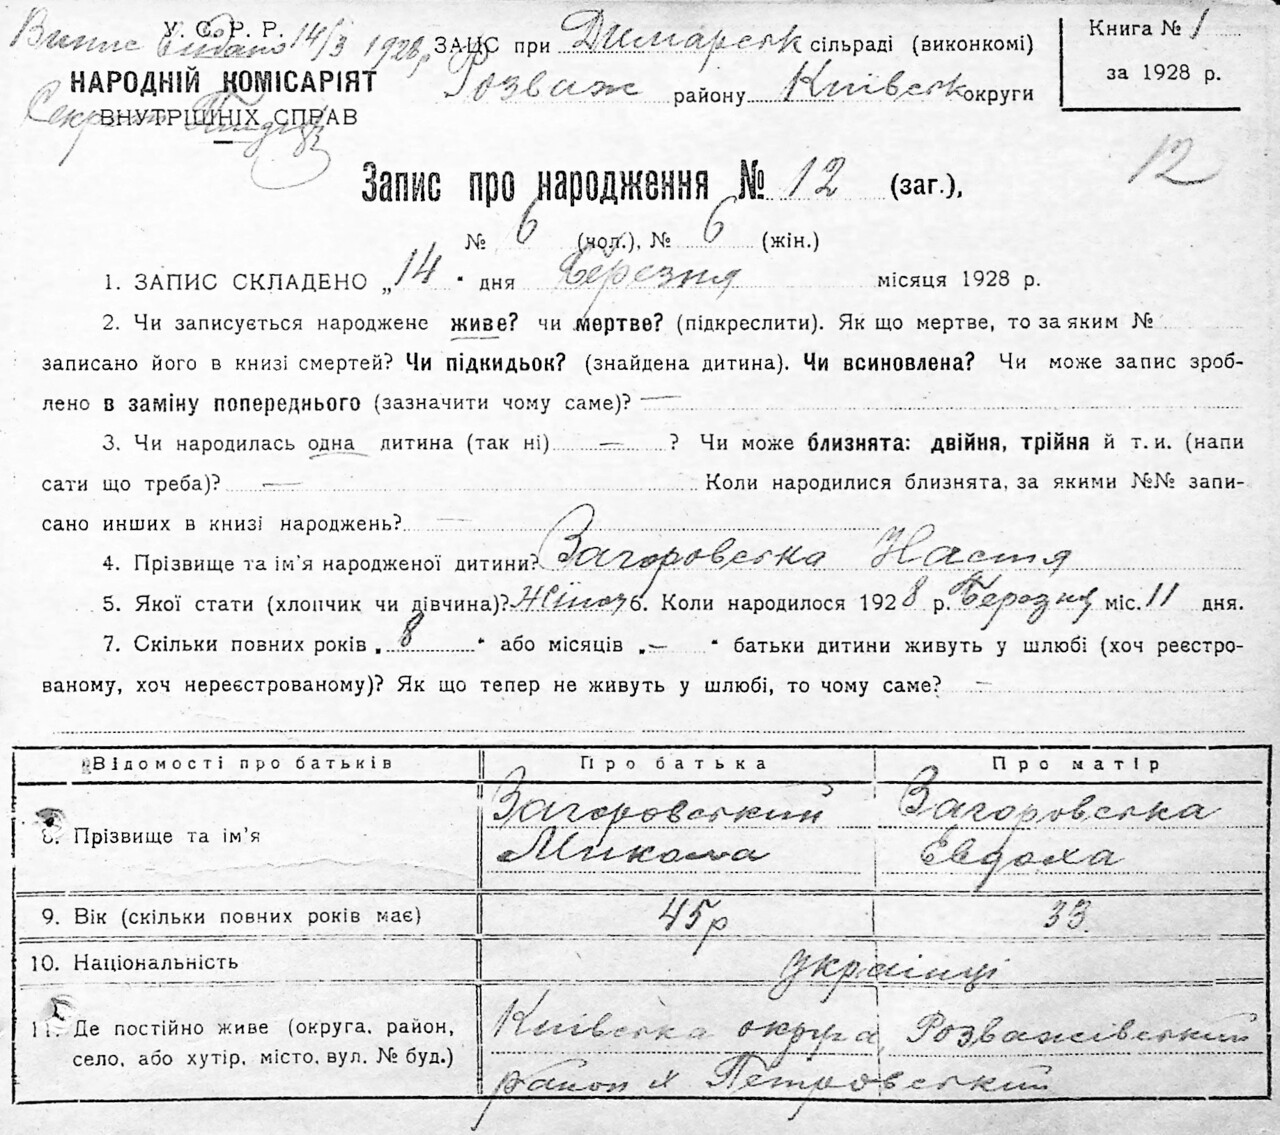 У. С. Р. Р.
Випис видано 14/3 1928 р
НАРОДНІЙ КОМІСАРІЯТ
ВНУТРІШНІХ СПРАВ
ЗАЦС при Димарськ сільраді (виконкомі)
Розваж району Київськ округи
Книга № 1
за 1928 р.
12
Запис про народження № 12 (заг.),
№ 6 (чол.), № 6 (жін.)
1. ЗАПИС СКЛАДЕНО „14" дня Березня місяця 1928 р.
2. Чи записується народжене живе? чи мертве? (підкреслити). Як що мертве, то за яким №
записано його в книзі смертей? Чи підкидьок? (знайдена дитина). Чи всиновлена? Чи може запис зроб-
лено в заміну попереднього (зазначити чому саме)? —
3. Чи народилась одна дитина (так ні) — ? Чи може близнята: двійня, трійня й т. и. (напи
сати що треба)? — Коли народилися близнята, за якими №№ запи-
сано инших в книзі народжень? —
4. Прізвище та ім'я народженої дитини? Загоровська Настя
5. Якої стати (хлопчик чи дівчина)? Жіноч 6. Коли народилося 1928 р. Березня міс. 11 дня.
7. Скільки повних років „8" або місяців „—" батьки дитини живуть у шлюбі (хоч реєстро-
ваному, хоч нереєстрованому)? Як що тепер не живуть у шлюбі, то чому саме? —
Відомості про батьків Про батька Про матір
8. Прізвище та ім'я Загоровський Микола Загоровська Евдоха
9. Вік (скільки повних років має) 45 р 33.
10. Національність українці
11. Де постійно живе (округа, район, Київська округа, Розважівський
село, або хутір, місто, вул. № буд.) район х Петровський